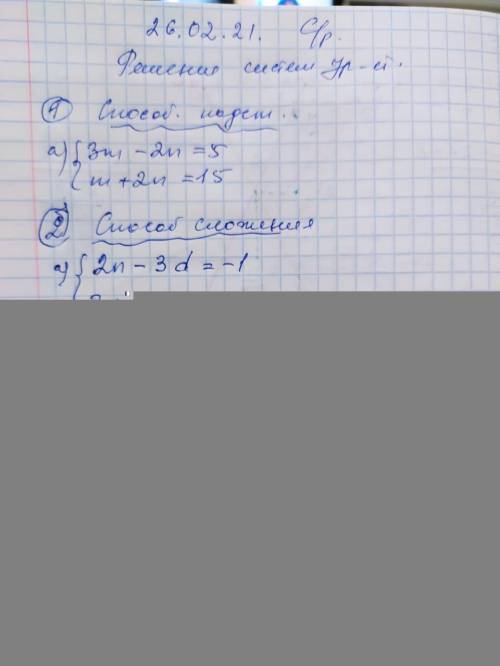 26.02.21. С/р.
Решение систем ур-й.
① Способ. подст...
а) { 3m - 2n = 5
m + 2n = 15
② Способ сложения
а) { 2n - 3d = -1